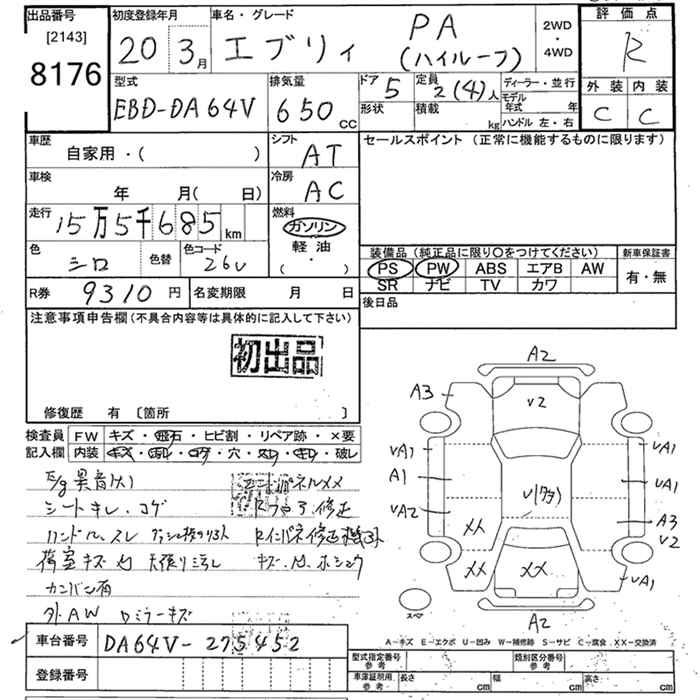 出品番号
[2143]
8176
初度登録年月
20 3月
車名・グレード
エブリィ
PA
(ハイルーフ)
2WD
・
4WD
評価点
R
外装 内装
C C
型式
EBD-DA64V
排気量
650 CC
ドア
5
形状
定員
2(4)人
積載
kg
ディーラー・並行
モデル年式 年
ハンドル 左・右
車歴
自家用・( )
シフト
AT
セールスポイント (正常に機能するものに限ります)
車検
年 月( 日)
冷房
AC
走行
15万5千685 km
燃料
ガソリン
軽油
( ・ )
色
シロ
色替
色コード
26U
装備品 (純正品に限り○をつけてください)
新車保証書
PS PW ABS エアB AW
SR ナビ TV カワ
有・無
R券
9310円
名変期限 月 日
後日品
注意事項申告欄(不具合内容等は具体的に記入して下さい)
初出品
修復歴 有 [箇所 ]
検査員記入欄
FW キズ・飛石・ヒビ割・リペア跡・×要
内装 キズ・汚レ・コゲ・穴・スレ・キレ・破レ
E/g異音(大)
シートキレ、コゲ
ハンドルスレ
荷室キズ凹 天張り汚し
カンバン有
外AW ロミラーキズ
キズ、凹、ホシュウ
A2
A3
V2
VA1
A1
VA2
VA1
VA1
A3
V2
VA1
XX
XX
XX
A2
スペア
A-キズ E-エクボ U-凹み W-補修跡 S-サビ C-腐食 XX-交換済
車台番号
DA64V-275452
登録番号
型式指定番号
参考
類別区分番号
参考
車庫証明用
参考
長さ cm
幅 cm
高さ cm